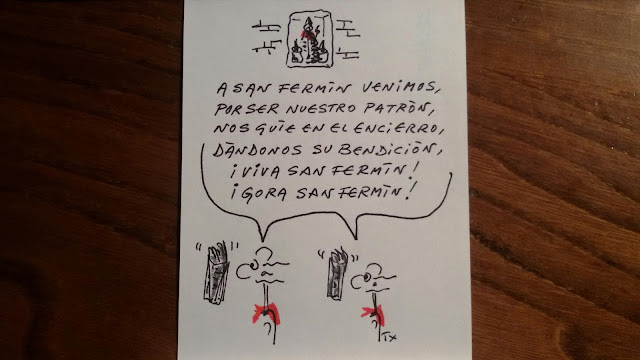 A SAN FERMÌN VENIMOS,
POR SER NUESTRO PATRÒN,
NOS GUÌE EN EL ENCIERRO,
DÀNDONOS SU BENDICIÒN,
¡VIVA SAN FERMÌN!
¡GORA SAN FERMÌN!
TX